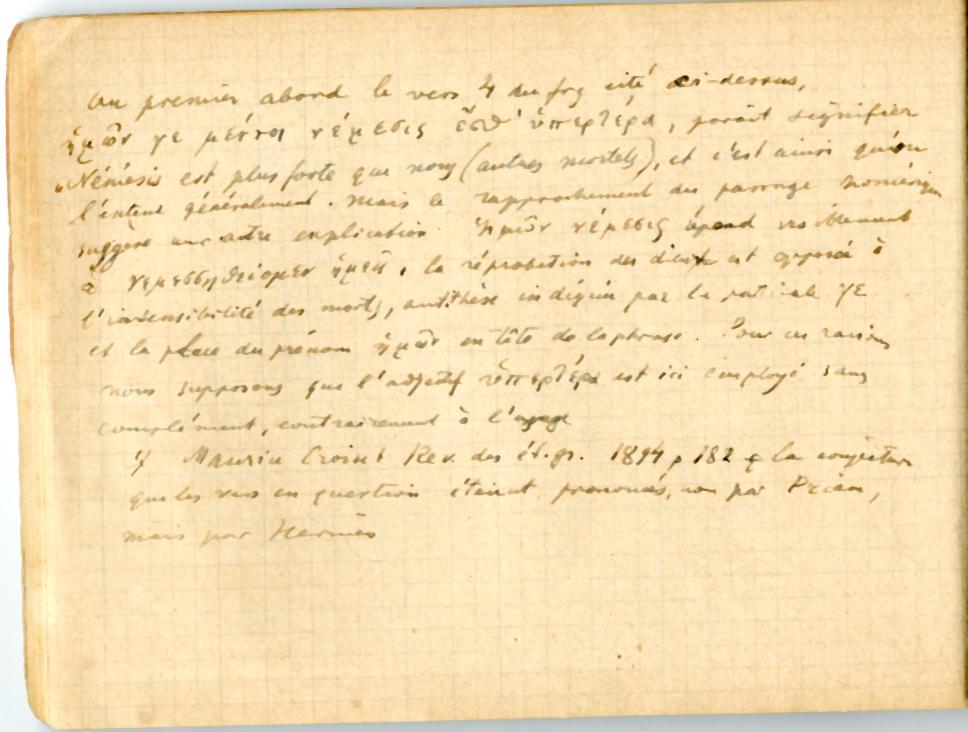 Au premier abord le vers 4 du frg cité ci-dessus,
ἡμῶν γε μέντοι νέμεσις ἔσθ' ὑπερτέρα, paraît signifier
"Némésis est plus forte que nous (autres mortels), et c'est ainsi qu'on
l'entend généralement. Mais le rapprochement du passage homérique
suggère une autre explication. Ἡμῶν νέμεσις répond
à νεμεσσηθείομεν ἡμεῖς, la réprobation des dieux est opposée à
l'insensibilité des morts, antithèse indiquée par la particule γε
et la place du pronom ἡμῶν en tête de la phrase. Pour ces raisons
nous supposons que l'adjectif ὑπερτέρα est ici employé sans
complément, contrairement à l'usage
Maurice Croiset Rev. des ét. gr. 1894 p 182 la conjecture
que les vers en question étaient prononcés, non par Priam,
mais par Hermès